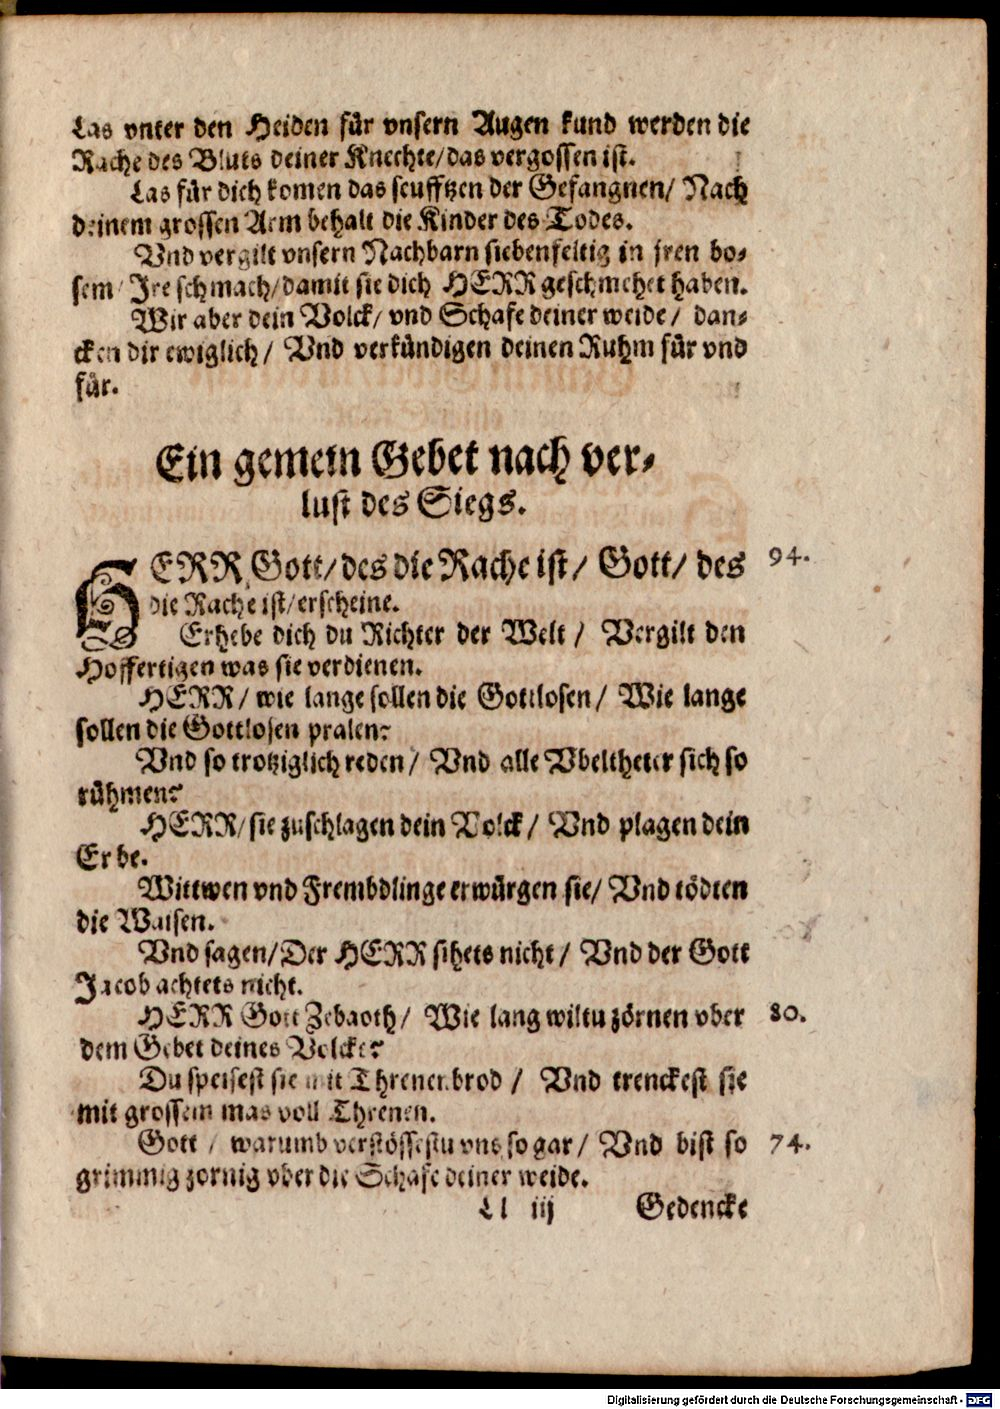 Las vnter den Heiden für vnsern Augen kund werden die
Rache des Bluts deiner Knechte/ das vergossen ist.
Las für dich komen das seufftzen der Gefangnen/ Nach
deinem grossen Arm behalt die Kinder des Todes.
Vnd vergilt vnsern Nachbarn siebenfeltig in jren bo-
sem/ Jre schmach/ damit sie dich HERR geschmehet haben.
Wir aber dein Volck/ vnd Schafe deiner weide/ dan-
cken dir ewiglich/ Vnd verkündigen deinen Ruhm für vnd
für.
Ein gemein Gebet nach ver-
lust des Siegs.
HERR Gott/ des die Rache ist/ Gott/ des 94.
die Rache ist/ erscheine.
Erhebe dich du Richter der Welt/ Vergilt den
Hoffertigen was sie verdienen.
HERR/ wie lange sollen die Gottlosen/ Wie lange
sollen die Gottlosen pralen?
Vnd so trotziglich reden/ Vnd alle Vbeltheter sich so
rühmen?
HERR/ sie zuschlagen dein Volck/ Vnd plagen dein
Erbe.
Wittwen vnd Frembdlinge erwürgen sie/ Vnd tödten
die Waisen.
Vnd sagen/ Der HERR sihets nicht/ Vnd der Gott
Jacob achtets nicht.
HERR Gott Zebaoth/ Wie lang wiltu zörnen vber 80.
dem Gebet deines Volckes?
Du speisest sie mit Threnenbrod/ Vnd trenckest sie
mit grossem mas voll Threnen.
Gott/ warumb verstössestu vns so gar/ Vnd bist so 74.
grimmig zornig vber die Schafe deiner weide.
Ll iij Gedencke
Digitalisierung gefördert durch die Deutsche Forschungsgemeinschaft - DFG